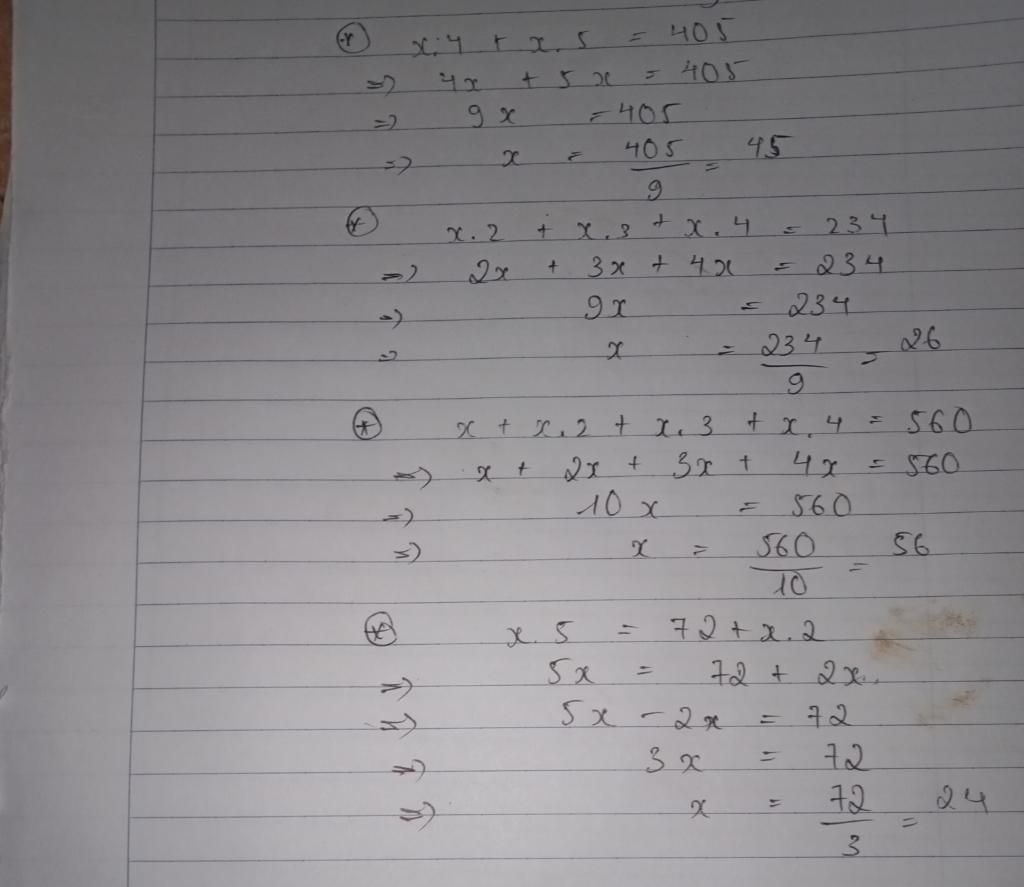 ⊛ x.4 + x.5 = 405
=> 4x + 5x = 405
=> 9x = 405
=> x = 405/9 = 45
⊛ x.2 + x.3 + x.4 = 234
=> 2x + 3x + 4x = 234
=> 9x = 234
=> x = 234/9 = 26
⊛ x + x.2 + x.3 + x.4 = 560
=> x + 2x + 3x + 4x = 560
=> 10x = 560
=> x = 560/10 = 56
⊛ x.5 = 72 + x.2
=> 5x = 72 + 2x
=> 5x - 2x = 72
=> 3x = 72
=> x = 72/3 = 24